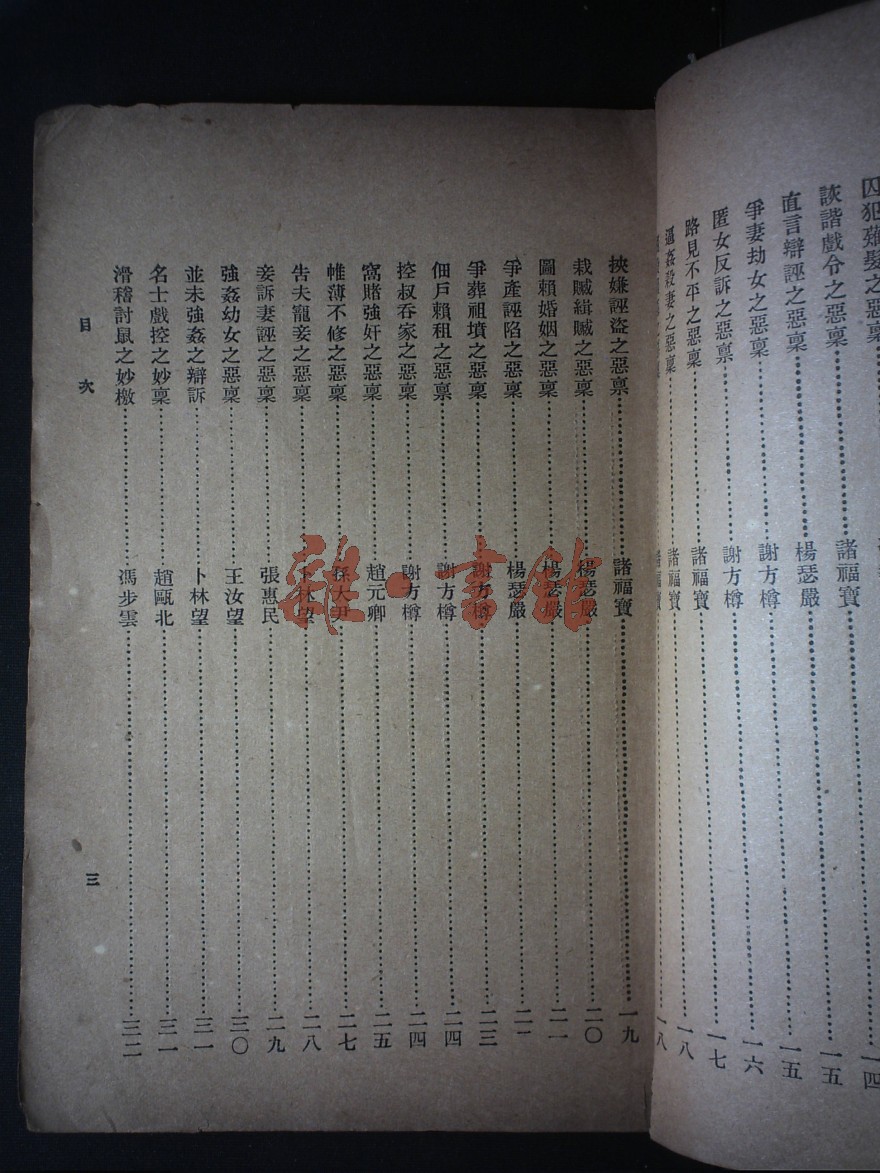 囚犯薙髮之惡稟 一四
詼諧戲令之惡稟 諸福寶 一五
直言辯誣之惡稟 楊瑟嚴 一五
爭妻劫女之惡稟 謝方樽 一六
匿女反訴之惡稟 謝方樽 一七
路見不平之惡稟 諸福寶 一八
逼姦殺妻之惡稟 諸福寶 一八
挾嫌誣盜之惡稟 諸福寶 一九
栽贓緝贓之惡稟 楊瑟嚴 二〇
圖賴婚姻之惡稟 楊瑟嚴 二一
爭產誣陷之惡稟 楊瑟嚴 二一
爭葬祖墳之惡稟 謝方樽 二三
佃戶賴租之惡稟 謝方樽 二四
控叔吞家之惡稟 謝方樽 二四
窩賭強奸之惡稟 趙元卿 二五
帷薄不修之惡稟 孫大尹 二七
告夫寵妾之惡稟 卜林望 二八
妾訴妻誣之惡稟 張惠民 二九
強姦幼女之惡稟 王汝望 三〇
並未強姦之辯訴 卜林望 三一
名士戲控之妙稟 趙甌北 三一
滑稽討鼠之妙檄 馮步雲 三二
目次
三
雜·書館